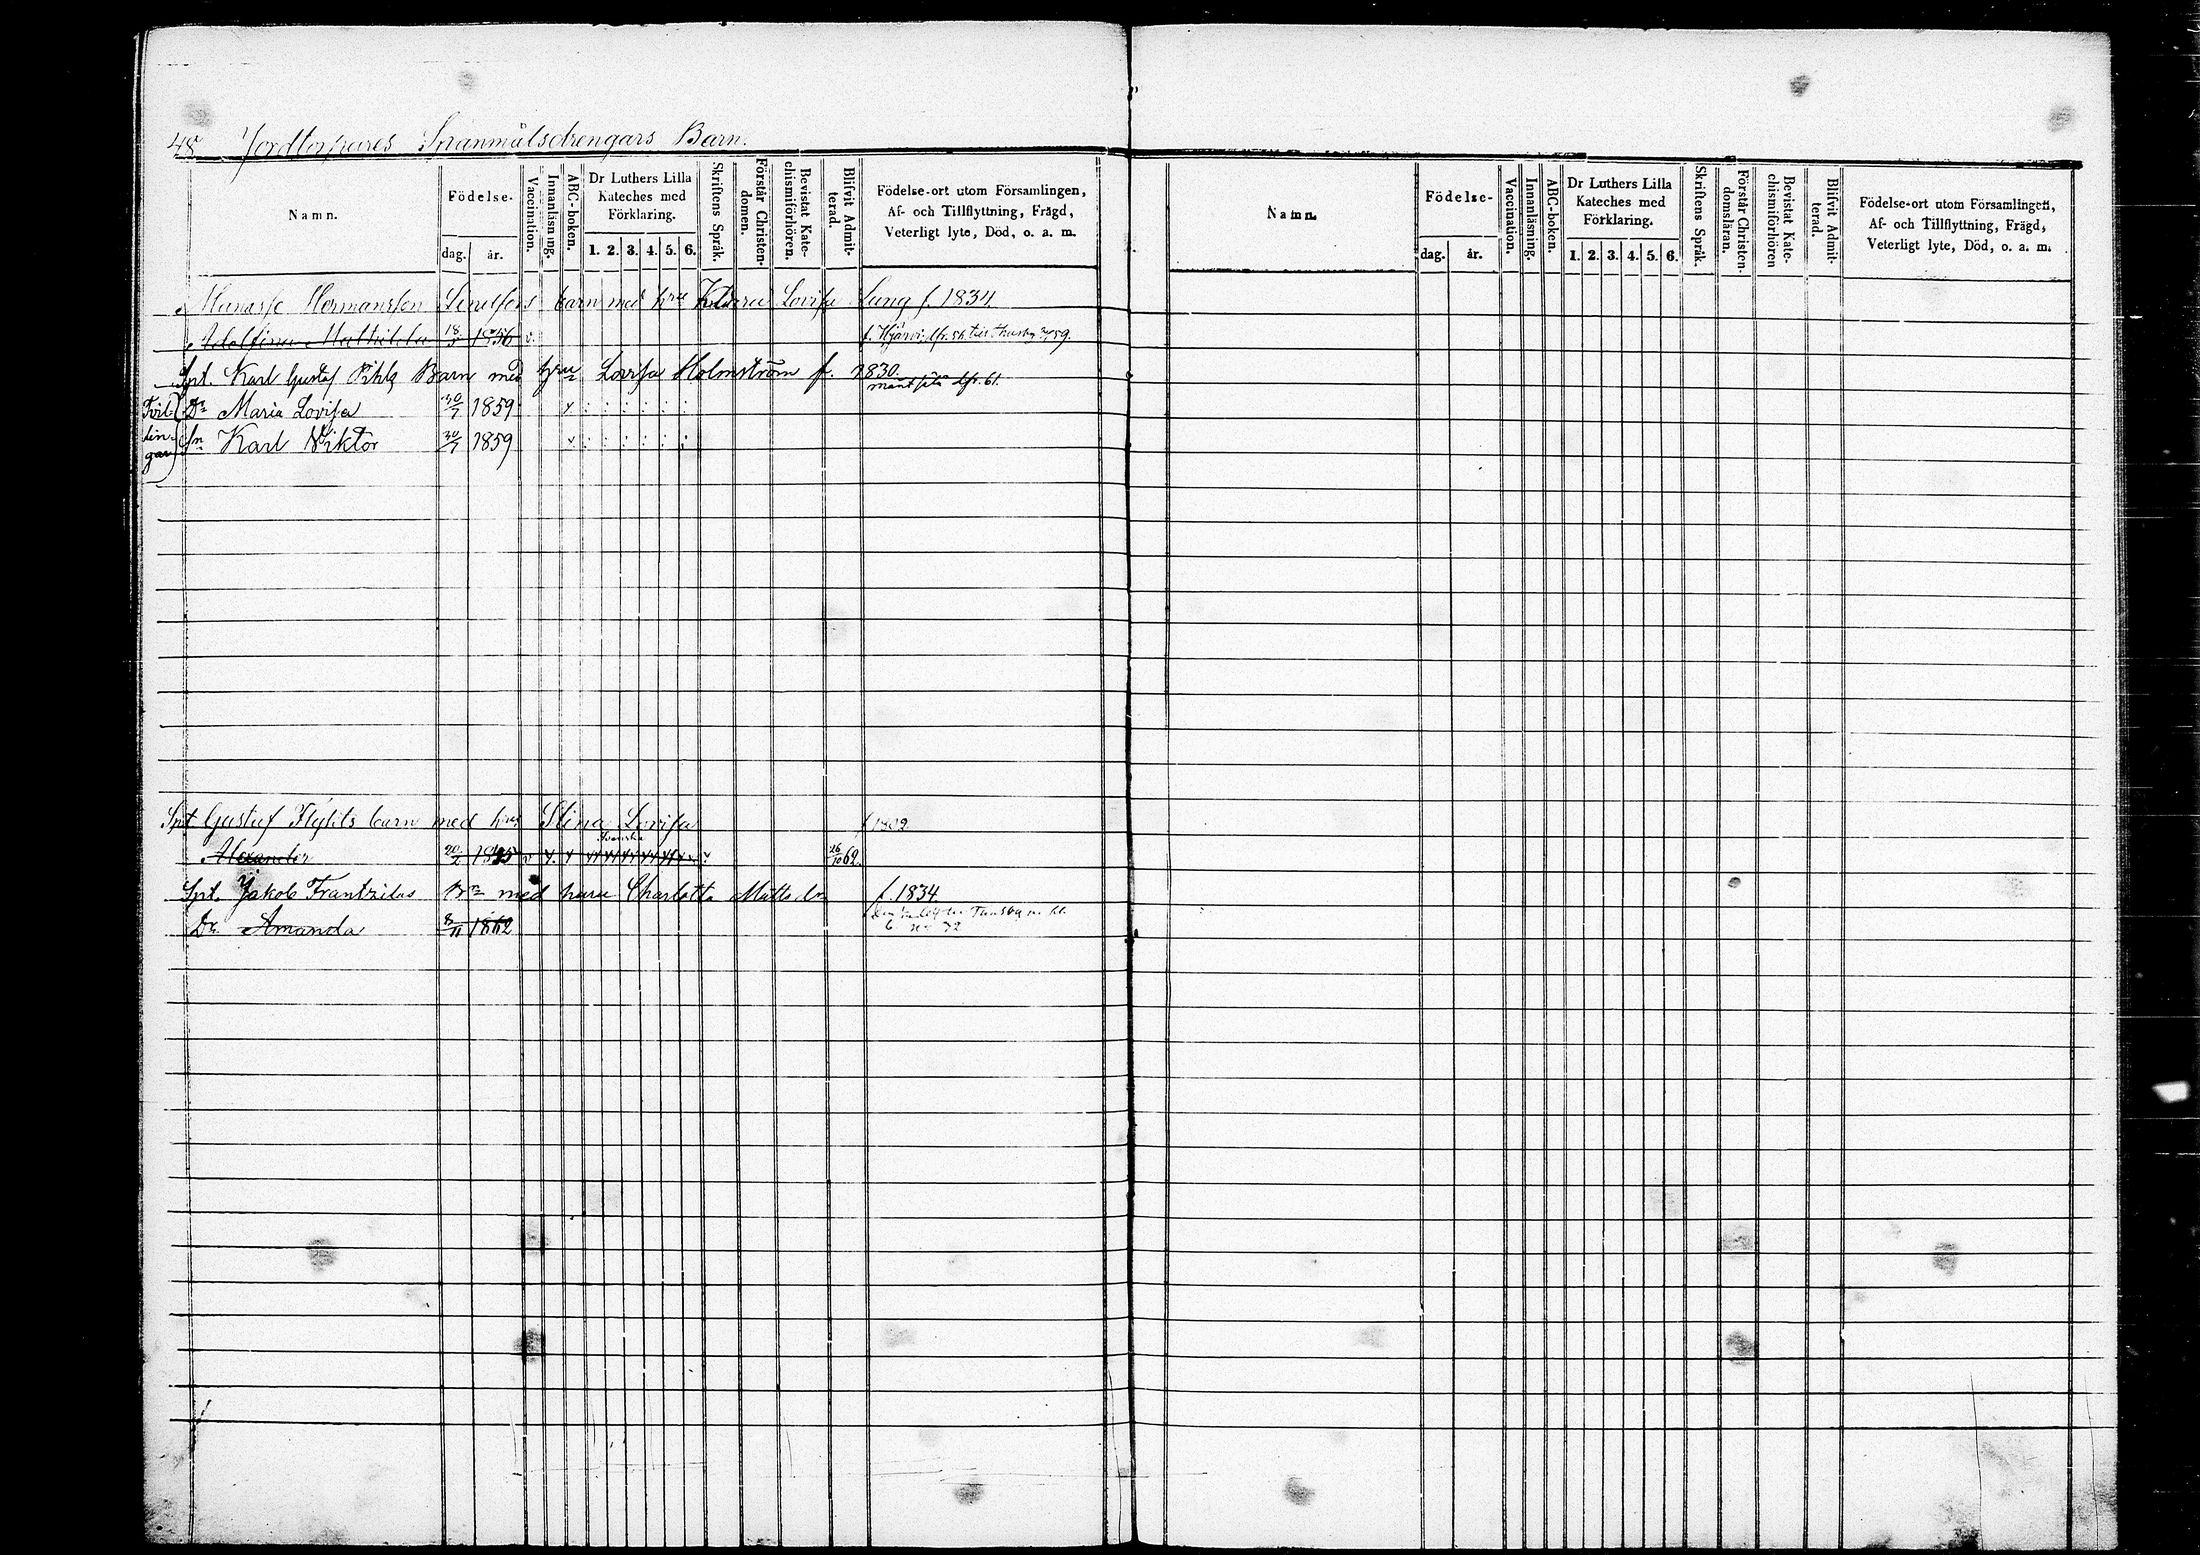 48 Jordtorpares Spanmålsdrengars Barn.
Namn. Födelse- dag. år. Vaccination. Innanläsning. ABC-boken. Dr Luthers Lilla Kateches med Förklaring. 1. 2. 3. 4. 5. 6. Skriftens Språk. Förstår Christendomen. Bevistat Katechismiförhören. Blifvit Admitterad. Födelse-ort utom Församlingen, Af- och Tillflyttning, Frägd, Veterligt lyte, Död, o. a. m.
Manasse Hermansson barn med hru Lovisa Ljung f. 1834
Adolfina Mathilda 18/5 1856 v.
Spt. Karl Gustaf Pihls Barn med hru Lovisa Holmström f. 1830.
Tvil- Dr Maria Lovisa 30/7 1859
lin- Sn Karl Viktor 30/7 1859
gar
Spt Gustaf Flykts barn med hru Stina Lovisa f 1802
Svenska
Alexander 20/2 1845 v 26/10 62.
Spt. Jakob Frantzilas Brn med hru Charlotta Matts dr f. 1834
Dr. Amanda 8/11 1862
Namn. Födelse- dag. år. Vaccination. Innanläsning. ABC-boken. Dr Luthers Lilla Kateches med Förklaring. 1. 2. 3. 4. 5. 6. Skriftens Språk. Förstår Christendomsläran. Bevistat Katechismiförhören Blifvit Admitterad. Födelse-ort utom Församlingen, Af- och Tillflyttning, Frägd, Veterligt lyte, Död, o. a. m.